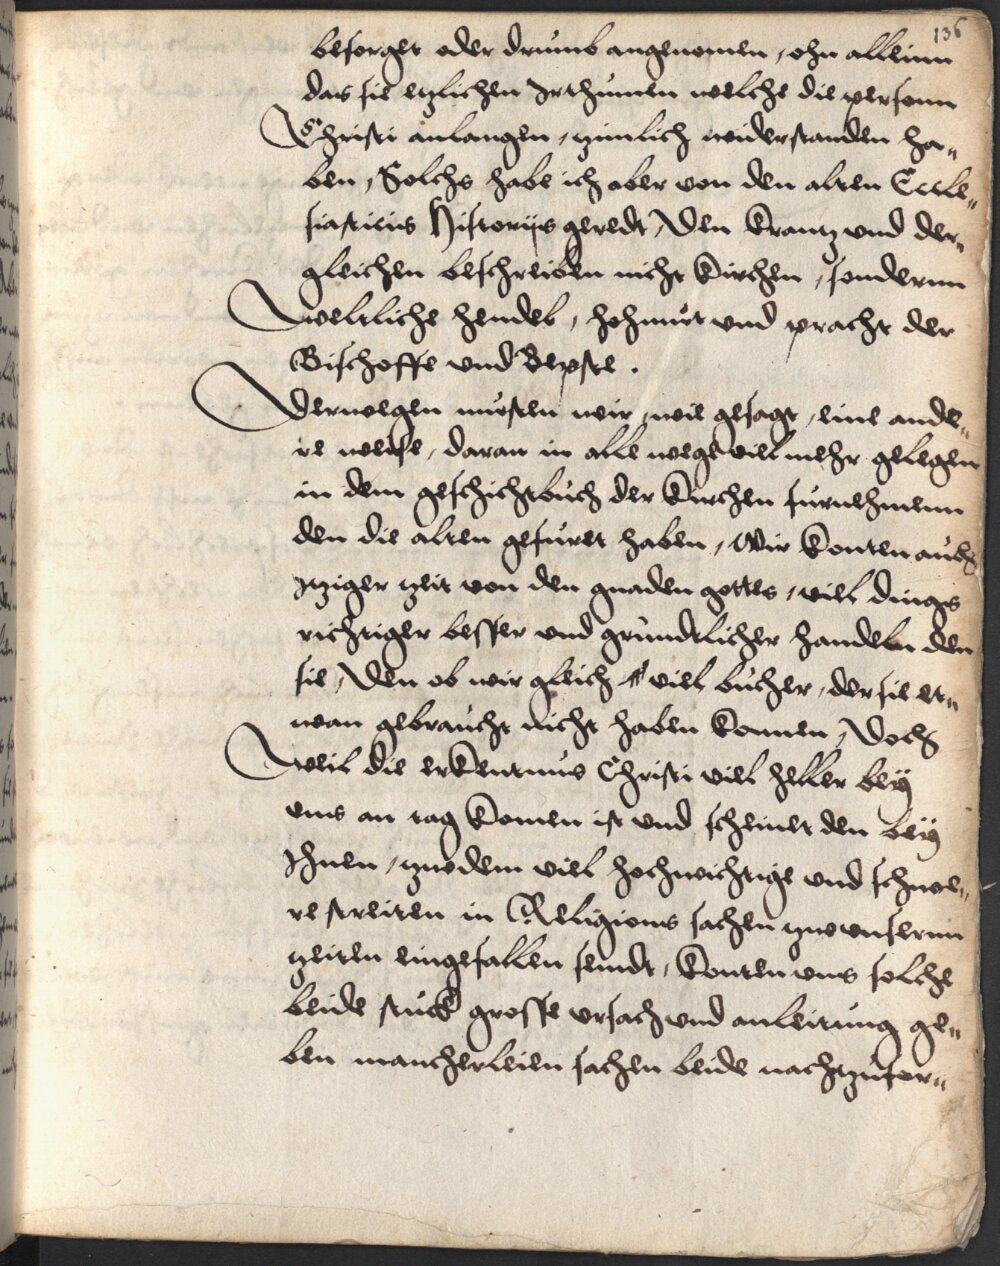 136
besorget oder drumb angenomen, ohn alleinn
das sie etzlichen Irthumen welche die personn
Christi anlangen, zimlich widerstanden ha„
ben, Solchs habe ich aber von den alten Eccle„
siasticis Historijs geredt, Den Krantz vnd der„
gleichen beschreiben nicht Kirchen, sondernn
weltliche hendel, hohmut vnd pracht der
Bischoffe vnd Bepste.
Derwegen musten wir, wie gesagt, eine ande„
re weise, daran in alle wege viel mehr gelegen
in dem geschichtbuch der Kirchen furnehmenn
den die alten gefuret haben, Wir Konten auch
itziger zeit von den gnaden gottes, viel dings
richtiger besser vnd grundtlicher handeln den
sie, Den ob wir gleich viel bucher, der sie et„
wan gebraucht nicht haben Konnen, Doch
weil die erkentnus Christi viel heller bey
vns an tag Komen ist vnd scheinet den bey
Ihnen, zwedem viel hochwichtige vnd schwe„
re streiten in Religions sachen zwe vnsernn
zeiten eingefallen seindt, Konten vns solche
beide stuck grosse vrsach vnd anleitung ge„
ben mancherleien sachen beide nachtzufor„